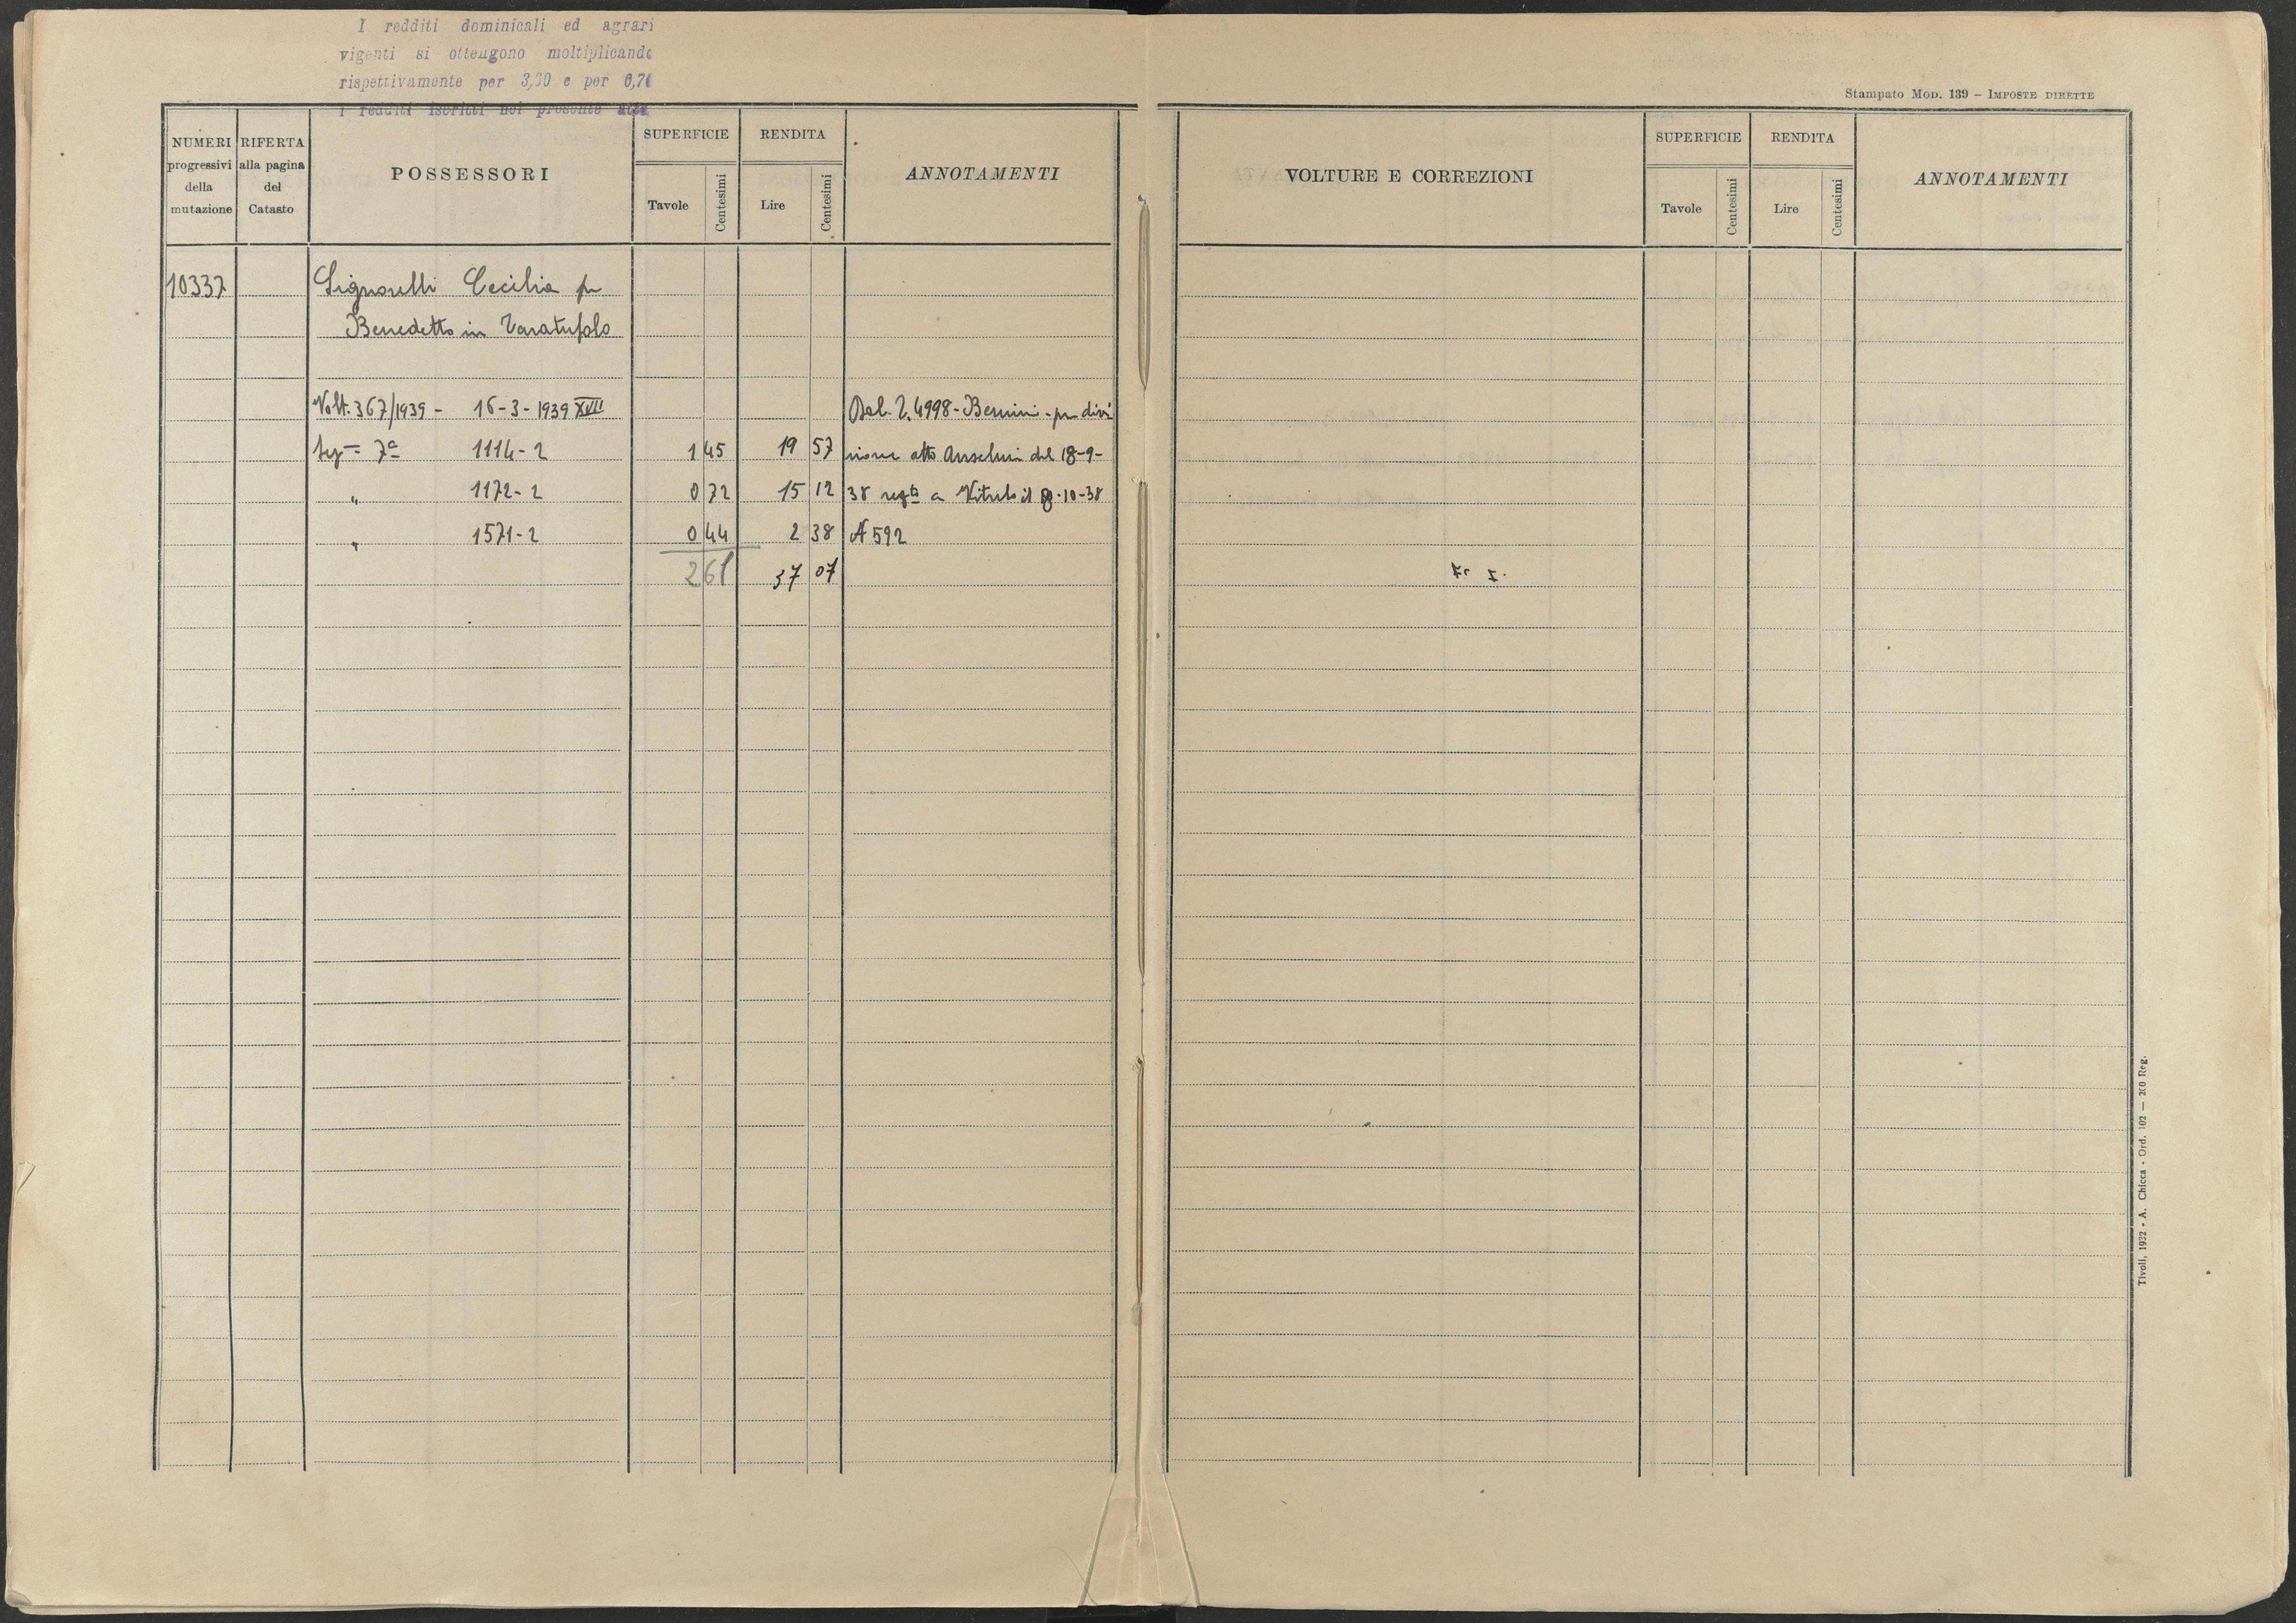 I redditi dominicali ed agrari
vigenti si ottengono moltiplicando
rispettivamente per 3,30 e per 0,70
i redditi iscritti nel presente
NUMERI progressivi della mutazione
RIFERTA alla pagina del Catasto
POSSESSORI
SUPERFICIE
Tavole Centesimi
RENDITA
Lire Centesimi
ANNOTAMENTI
10337 Signorelli Cecilia fu
Benedetto in Taratufolo
Volt. 367/1939 - 16-3-1939 XVII Dal. 2.4998 - Bernini - per divi
Sez= 7a 1114-2 1 45 19 57 sione atto Anselmi del 18-9-
" 1172-2 0 72 15 12 38 regto a Viterbo il 8-10-38
" 1571-2 0 44 2 38 N 592
2 61 37 07
Stampato Mod. 139 – IMPOSTE DIRETTE
VOLTURE E CORREZIONI
SUPERFICIE
Tavole Centesimi
RENDITA
Lire Centesimi
ANNOTAMENTI
Tivoli, 1932 - A. Chicca - Ord. 102 — 200 Reg.